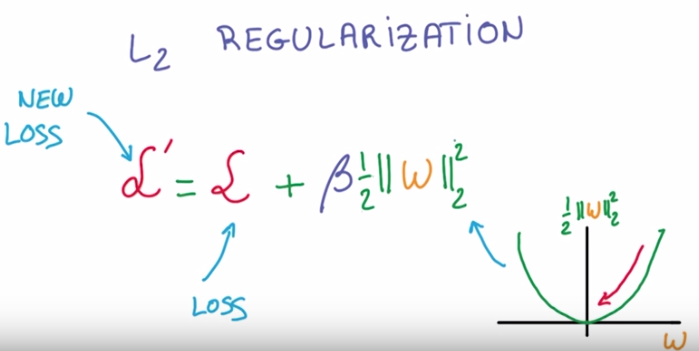 L₂ REGULARIZATION
NEW
LOSS
ℒ' = ℒ + β ½ ||w||₂²
LOSS
½ ||w||₂²
w